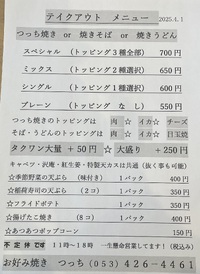 テイクアウト メニュー 2025.4.1
つっち焼き or 焼きそば or 焼きうどん
スペシャル （トッピング３種全部） 700 円
ミックス （トッピング２種選択） 650 円
シングル （トッピング１種選択） 600 円
プレーン （トッピング な し） 550 円
つっち焼きのトッピングは 肉 ☆ イカ☆ チーズ
そば・うどんのトッピングは 肉 ☆ イカ☆ 目玉焼
タクワン大量 + 50 円 ☆ 大盛り + 250 円
キャベツ・沢庵・紅生姜・特製天カスは共通（抜く事も可能）
☆季節野菜の天ぷら （味付き） １パック 400 円
☆稲荷寿司の天ぷら （２コ） １パック 350 円
☆フライドポテト １パック 350 円
☆揚げたこ焼き （８コ） １パック 400 円
☆あつあつポップコーン 150 円
不 定 休 で す 11時〜18時 一生懸命営業してます！（税込み）
お好み焼き つっち（053）426−4461